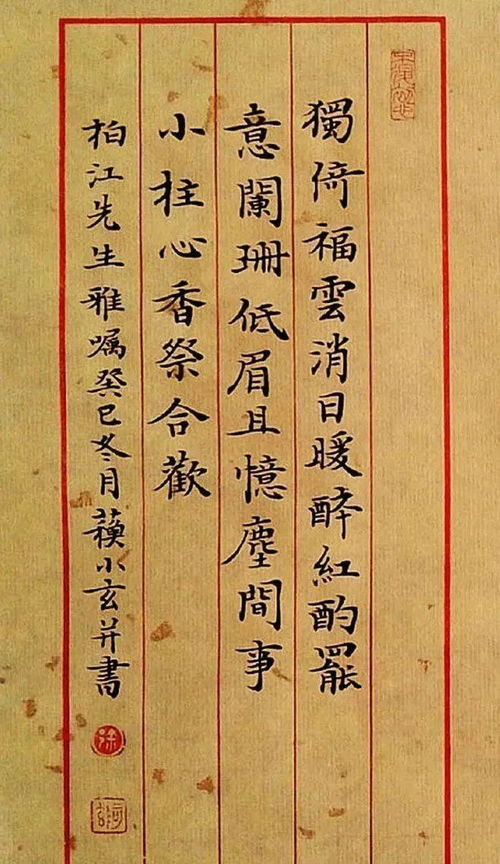 獨倚福雲消日暖醉紅酌罷
意闌珊低眉且憶塵間事
小炷心香祭合歡
柏江先生雅嘱癸巳冬月蘋小玄并書